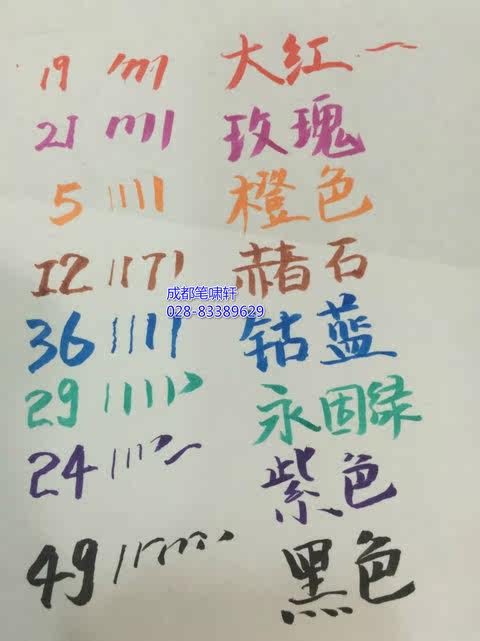 19 大红
21 玫瑰
5 橙色
12 赭石
成都笔啸轩
028-83389629
36 钴蓝
29 永固绿
24 紫色
49 黑色